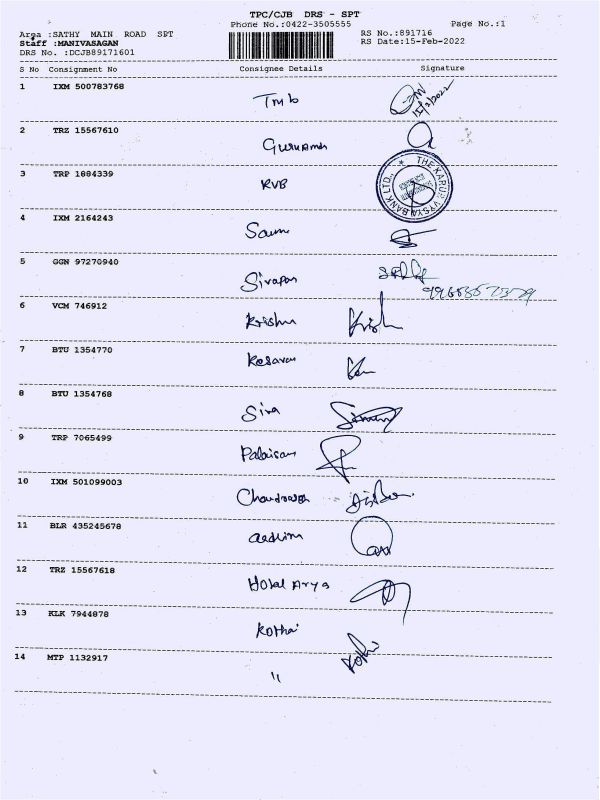 TPC/CJB DRS - SPT
Phone No.:0422-3505555
Page No.:1
Area :SATHY MAIN ROAD SPT
RS No.:891716
Staff :MANIVASAGAN
RS Date:15-Feb-2022
DRS No. :DCJB89171601
S No Consignment No Consignee Details Signature
1 IXM 500783768 Tmb
15/2/2022
2 TRZ 15567610
3 TRP 1084339 KVB
THE KARUR VYSYA BANK LTD.,
4 IXM 2164243
5 GGN 97270940
6 VCM 746912 Krishna Krish
7 BTU 1354770 Kesavan
8 BTU 1354768 Siva
9 TRP 7065499
10 IXM 501099003
11 BLR 435245678
12 TRZ 15567618 Hotel Arya
13 KLK 7944878 Kothai
14 MTP 1132917 "